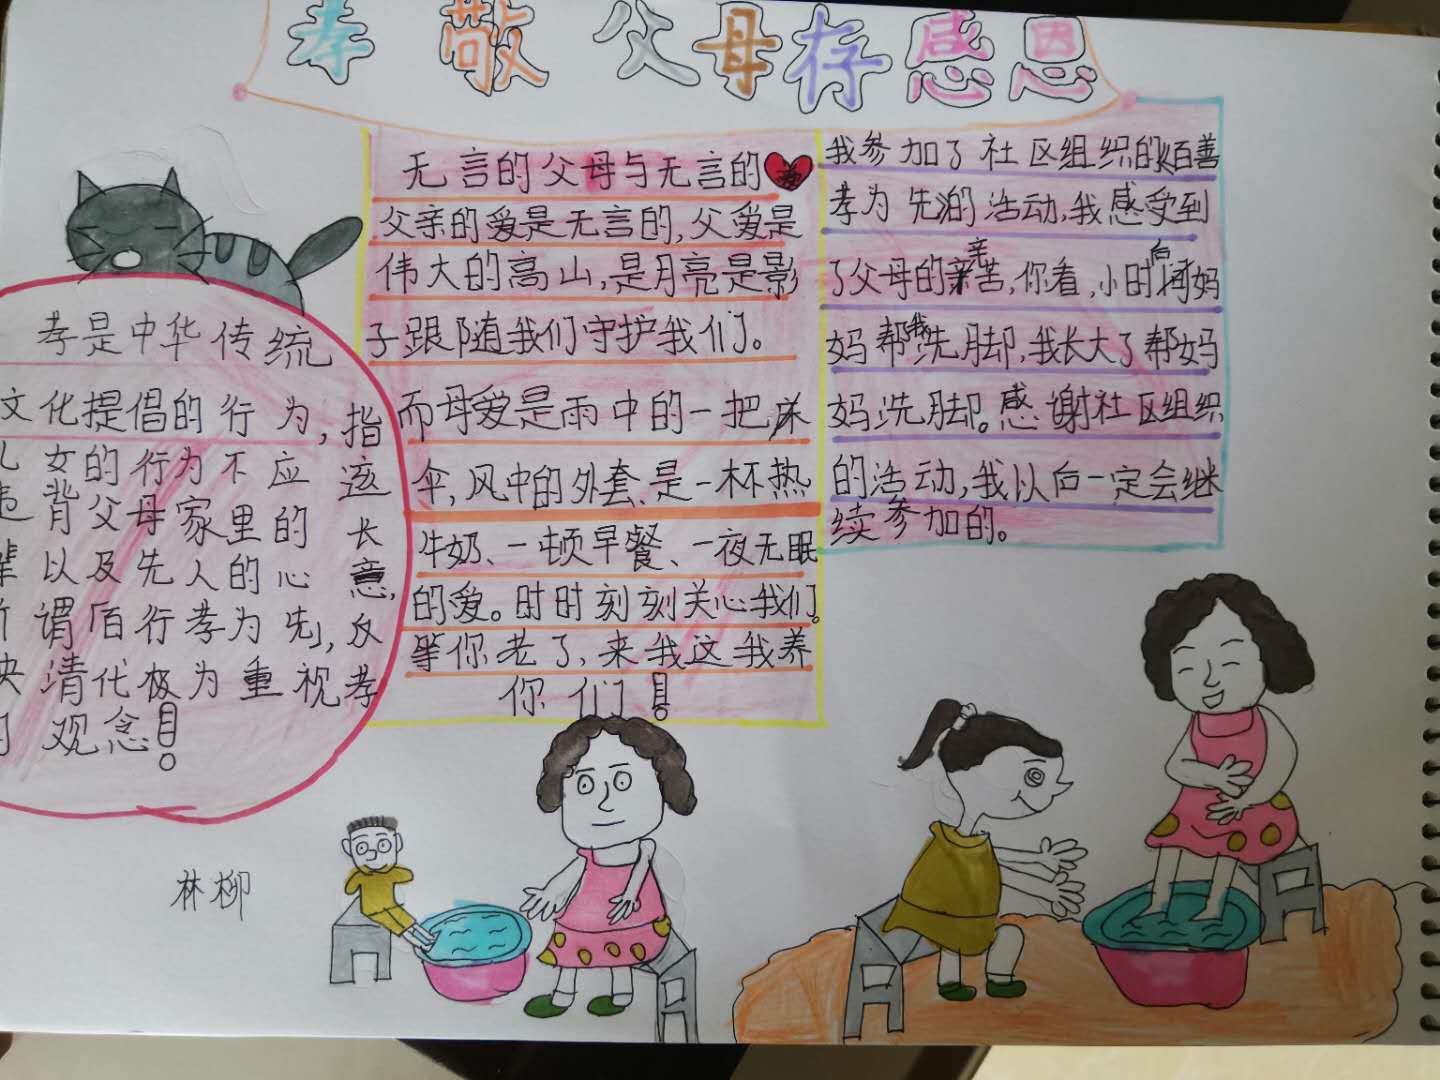 孝敬父母存感恩
孝是中华传统
文化提倡的行为,指
儿女的行为不应该
违背父母家里的长
辈以及先人的心意,
谓百行孝为先,反
映清代极为重视孝
观念!
无言的父母与无言的
父亲的爱是无言的,父爱是
伟大的高山,是月亮是影
子跟随我们守护我们。
而母爱是雨中的一把
伞,风中的外套、是一杯热
牛奶、一顿早餐、一夜无眠
的爱。时时刻刻关心我们。
等你老了,来我这我养
你们!
我参加了社区组织的《百善
孝为先》的活动,我感受到
了父母的辛苦,你看,小时候妈
妈帮我洗脚,我长大了帮妈
妈洗脚。感谢社区组织
的活动,我以后一定会继
续参加的。
林柳